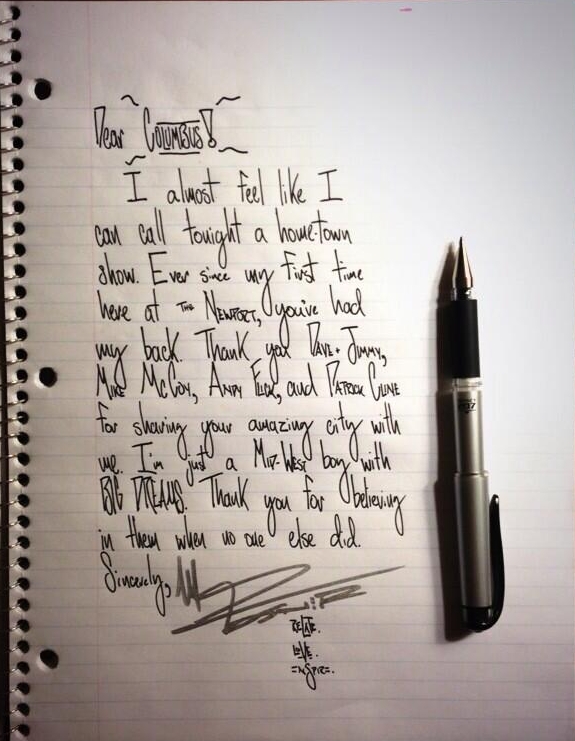 Dear COLUMBUS!
I almost feel like I
can call tonight a home-town
show. Ever since my first time
here at THE NEWPORT, you've had
my back. Thank you DAVE + JIMMY,
MIKE McCOY, ANDY FLICK, and PATRICK CLINE
for sharing your amazing city with
me. I'm just a MID-WEST boy with
BIG DREAMS. Thank you for believing
in them when no one else did.
Sincerely,
RELATE.
LOVE.
INSPIRE.